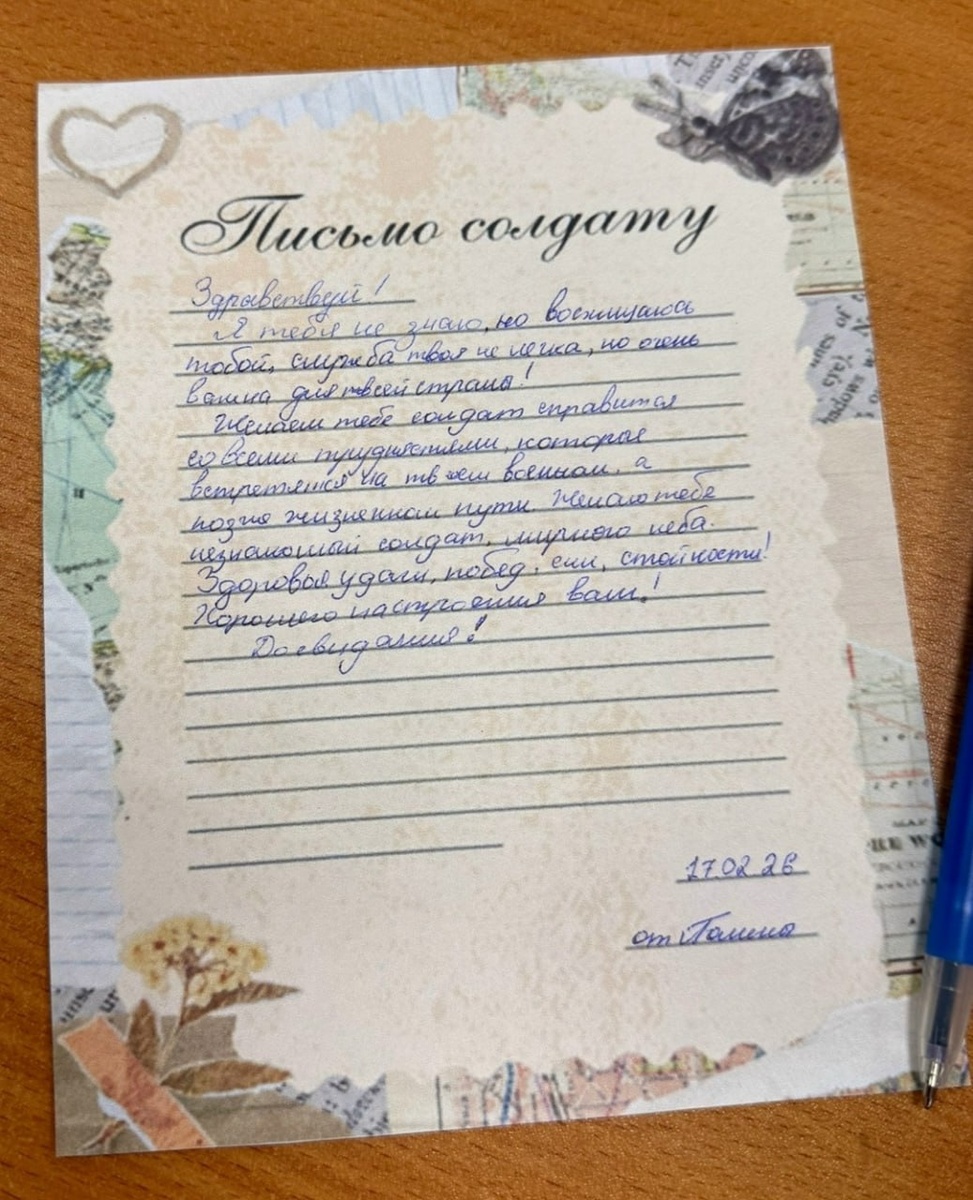 Письмо солдату
Здравствуй!
Я тебя не знаю, но восхищаюсь
тобой, служба твоя не легка, но очень
важна для твоей страны!
Желаем тебе солдат справится
со всеми трудностями, которые
встретятся на твоем военном, а
позже жизненном пути. Желаю тебе
незнакомый солдат, мирного неба.
Здоровья удачи, побед, сил, стойкости!
Хорошего настроения вам!
Досвидания!
17.02.26
от